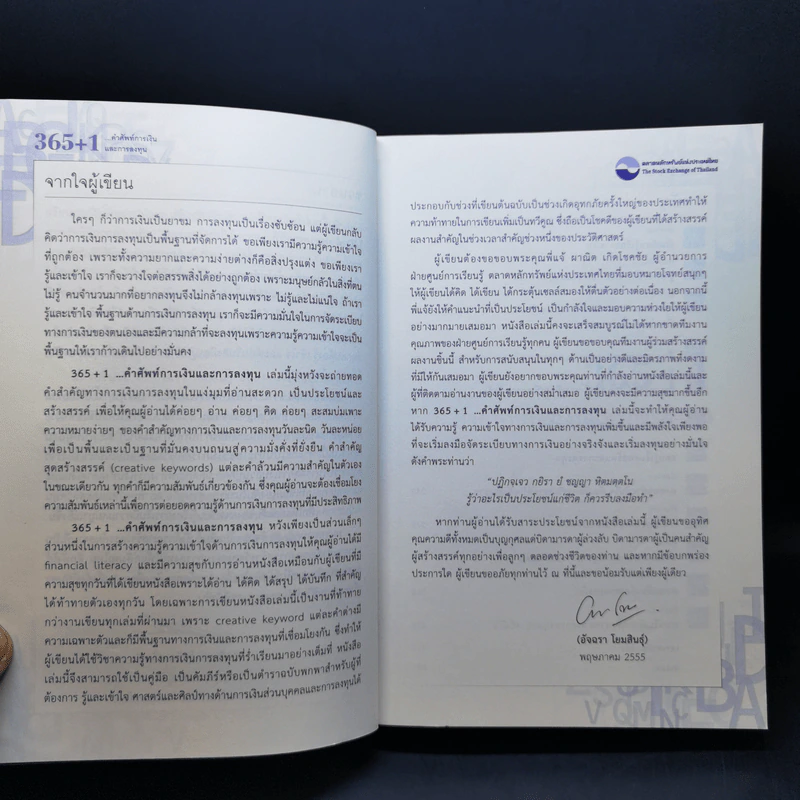 365+1 ...คำศัพท์การเงิน
และการลงทุน
จากใจผู้เขียน
ใครๆ ก็ว่าการเงินเป็นยาขม การลงทุนเป็นเรื่องซับซ้อน แต่ผู้เขียนกลับ
คิดว่าการเงินการลงทุนเป็นพื้นฐานที่จัดการได้ ขอเพียงเรามีความรู้ความเข้าใจ
ที่ถูกต้อง เพราะทั้งความยากและความง่ายต่างก็คือสิ่งปรุงแต่ง ขอเพียงเรา
รู้และเข้าใจ เราก็จะวางใจต่อสรรพสิ่งได้อย่างถูกต้อง เพราะมนุษย์กลัวในสิ่งที่ตน
ไม่รู้ คนจำนวนมากที่อยากลงทุนจึงไม่กล้าลงทุนเพราะ ไม่รู้และไม่แน่ใจ ถ้าเรา
รู้และเข้าใจ พื้นฐานด้านการเงินการลงทุน เราก็จะมีความมั่นใจในการจัดระเบียบ
ทางการเงินของตนเองและมีความกล้าที่จะลงทุนเพราะความรู้ความเข้าใจจะเป็น
พื้นฐานให้เราก้าวเดินไปอย่างมั่นคง
365+1 ...คำศัพท์การเงินและการลงทุน เล่มนี้มุ่งหวังจะถ่ายทอด
คำสำคัญทางการเงินการลงทุนในแง่มุมที่อ่านสะดวก เป็นประโยชน์และ
สร้างสรรค์ เพื่อให้คุณผู้อ่านได้ค่อยๆ อ่าน ค่อยๆ คิด ค่อยๆ สะสมบ่มเพาะ
ความหมายง่ายๆ ของคำสำคัญทางการเงินการลงทุนวันละนิด วันละหน่อย
เพื่อเป็นพื้นและเป็นฐานที่มั่นคงบนถนนสู่ความมั่งคั่งที่ยั่งยืน คำสำคัญ
สุดสร้างสรรค์ (creative keywords) แต่ละคำล้วนมีความสำคัญในตัวเอง
ในขณะเดียวกัน ทุกคำก็มีความสัมพันธ์เกี่ยวข้องกัน ซึ่งคุณผู้อ่านจะต้องเชื่อมโยง
ความสัมพันธ์เหล่านี้เพื่อการต่อยอดความรู้ด้านการเงินการลงทุนที่มีประสิทธิภาพ
365+1 ...คำศัพท์การเงินและการลงทุน หวังเพียงเป็นส่วนเล็กๆ
ส่วนหนึ่งในการสร้างความรู้ความเข้าใจด้านการเงินการลงทุนให้คุณผู้อ่านได้มี
financial literacy และมีความสุขกับการอ่านหนังสือเหมือนกับผู้เขียนที่มี
ความสุขทุกวันที่ได้เขียนหนังสือเพราะได้อ่าน ได้คิด ได้สรุป ได้บันทึก ที่สำคัญ
ได้ท้าทายตัวเองทุกวัน โดยเฉพาะการเขียนหนังสือเล่มนี้เป็นงานที่ท้าทาย
กว่างานเขียนทุกเล่มที่ผ่านมา เพราะ creative keyword แต่ละคำต่างมี
ความเฉพาะตัวและก็มีพื้นฐานทางการเงินและการลงทุนที่เชื่อมโยงกัน ซึ่งทำให้
ผู้เขียนได้ใช้วิชาความรู้ทางการเงินการลงทุนที่ร่ำเรียนมาอย่างเต็มที่ หนังสือ
เล่มนี้จึงสามารถใช้เป็นคู่มือ เป็นคัมภีร์หรือเป็นตำราฉบับพกพาสำหรับผู้ที่
ต้องการ รู้และเข้าใจ ศาสตร์และศิลป์ทางด้านการเงินส่วนบุคคลและการลงทุนได้
ตลาดหลักทรัพย์แห่งประเทศไทย
The Stock Exchange of Thailand
ประกอบกับช่วงที่เขียนต้นฉบับเป็นช่วงเกิดอุทกภัยครั้งใหญ่ของประเทศทำให้
ความท้าทายในการเขียนเพิ่มเป็นทวีคูณ ซึ่งถือเป็นโชคดีของผู้เขียนที่ได้สร้างสรรค์
ผลงานสำคัญในช่วงเวลาสำคัญช่วงหนึ่งของประวัติศาสตร์
ผู้เขียนต้องขอขอบพระคุณพี่แจ้ ผาณิต เกิดโชคชัย ผู้อำนวยการ
ฝ่ายศูนย์การเรียนรู้ ตลาดหลักทรัพย์แห่งประเทศไทยที่มอบหมายโจทย์สนุกๆ
ให้ผู้เขียนได้คิด ได้เขียน ได้กระตุ้นเซลล์สมองให้ตื่นตัวอย่างต่อเนื่อง นอกจากนี้
พี่แจ้ยังให้คำแนะนำที่เป็นประโยชน์ เป็นกำลังใจและมอบความห่วงใยให้ผู้เขียน
อย่างมากมายเสมอมา หนังสือเล่มนี้คงจะเสร็จสมบูรณ์ไม่ได้หากขาดทีมงาน
คุณภาพของฝ่ายศูนย์การเรียนรู้ทุกคน ผู้เขียนขอขอบคุณทีมงานผู้ร่วมสร้างสรรค์
ผลงานชิ้นนี้ สำหรับการสนับสนุนในทุกๆ ด้านเป็นอย่างดีและมิตรภาพที่งดงาม
ที่มีให้กันเสมอมา ผู้เขียนยังอยากขอบพระคุณท่านที่กำลังอ่านหนังสือเล่มนี้และ
ผู้ที่ติดตามอ่านงานของผู้เขียนอย่างสม่ำเสมอ ผู้เขียนคงจะมีความสุขมากขึ้นอีก
หาก 365+1 ...คำศัพท์การเงินและการลงทุน เล่มนี้จะทำให้คุณผู้อ่าน
ได้รับความรู้ ความเข้าใจทางการเงินการลงทุนเพิ่มขึ้นและมีพลังใจเพียงพอ
ที่จะเริ่มลงมือจัดระเบียบทางการเงินอย่างจริงจังและเริ่มลงทุนอย่างมั่นใจ
ดังคำพระท่านว่า
"ปฏิกจฺเจว กยิรา ยํ ชญฺญา หิตมตฺตโน
รู้ว่าอะไรเป็นประโยชน์แก่ชีวิต ก็ควรรีบลงมือทำ"
หากท่านผู้อ่านได้รับสาระประโยชน์จากหนังสือเล่มนี้ ผู้เขียนขออุทิศ
คุณความดีทั้งหมดเป็นบุญกุศลแด่บิดามารดาผู้ล่วงลับ บิดามารดาผู้เป็นคนสำคัญ
ผู้สร้างสรรค์ทุกอย่างเพื่อลูกๆ ตลอดช่วงชีวิตของท่าน และหากมีข้อบกพร่อง
ประการใด ผู้เขียนขออภัยทุกท่านไว้ ณ ที่นี้และขอน้อมรับแต่เพียงผู้เดียว
(อัจฉรา โยมสินธุ์)
พฤษภาคม 2555